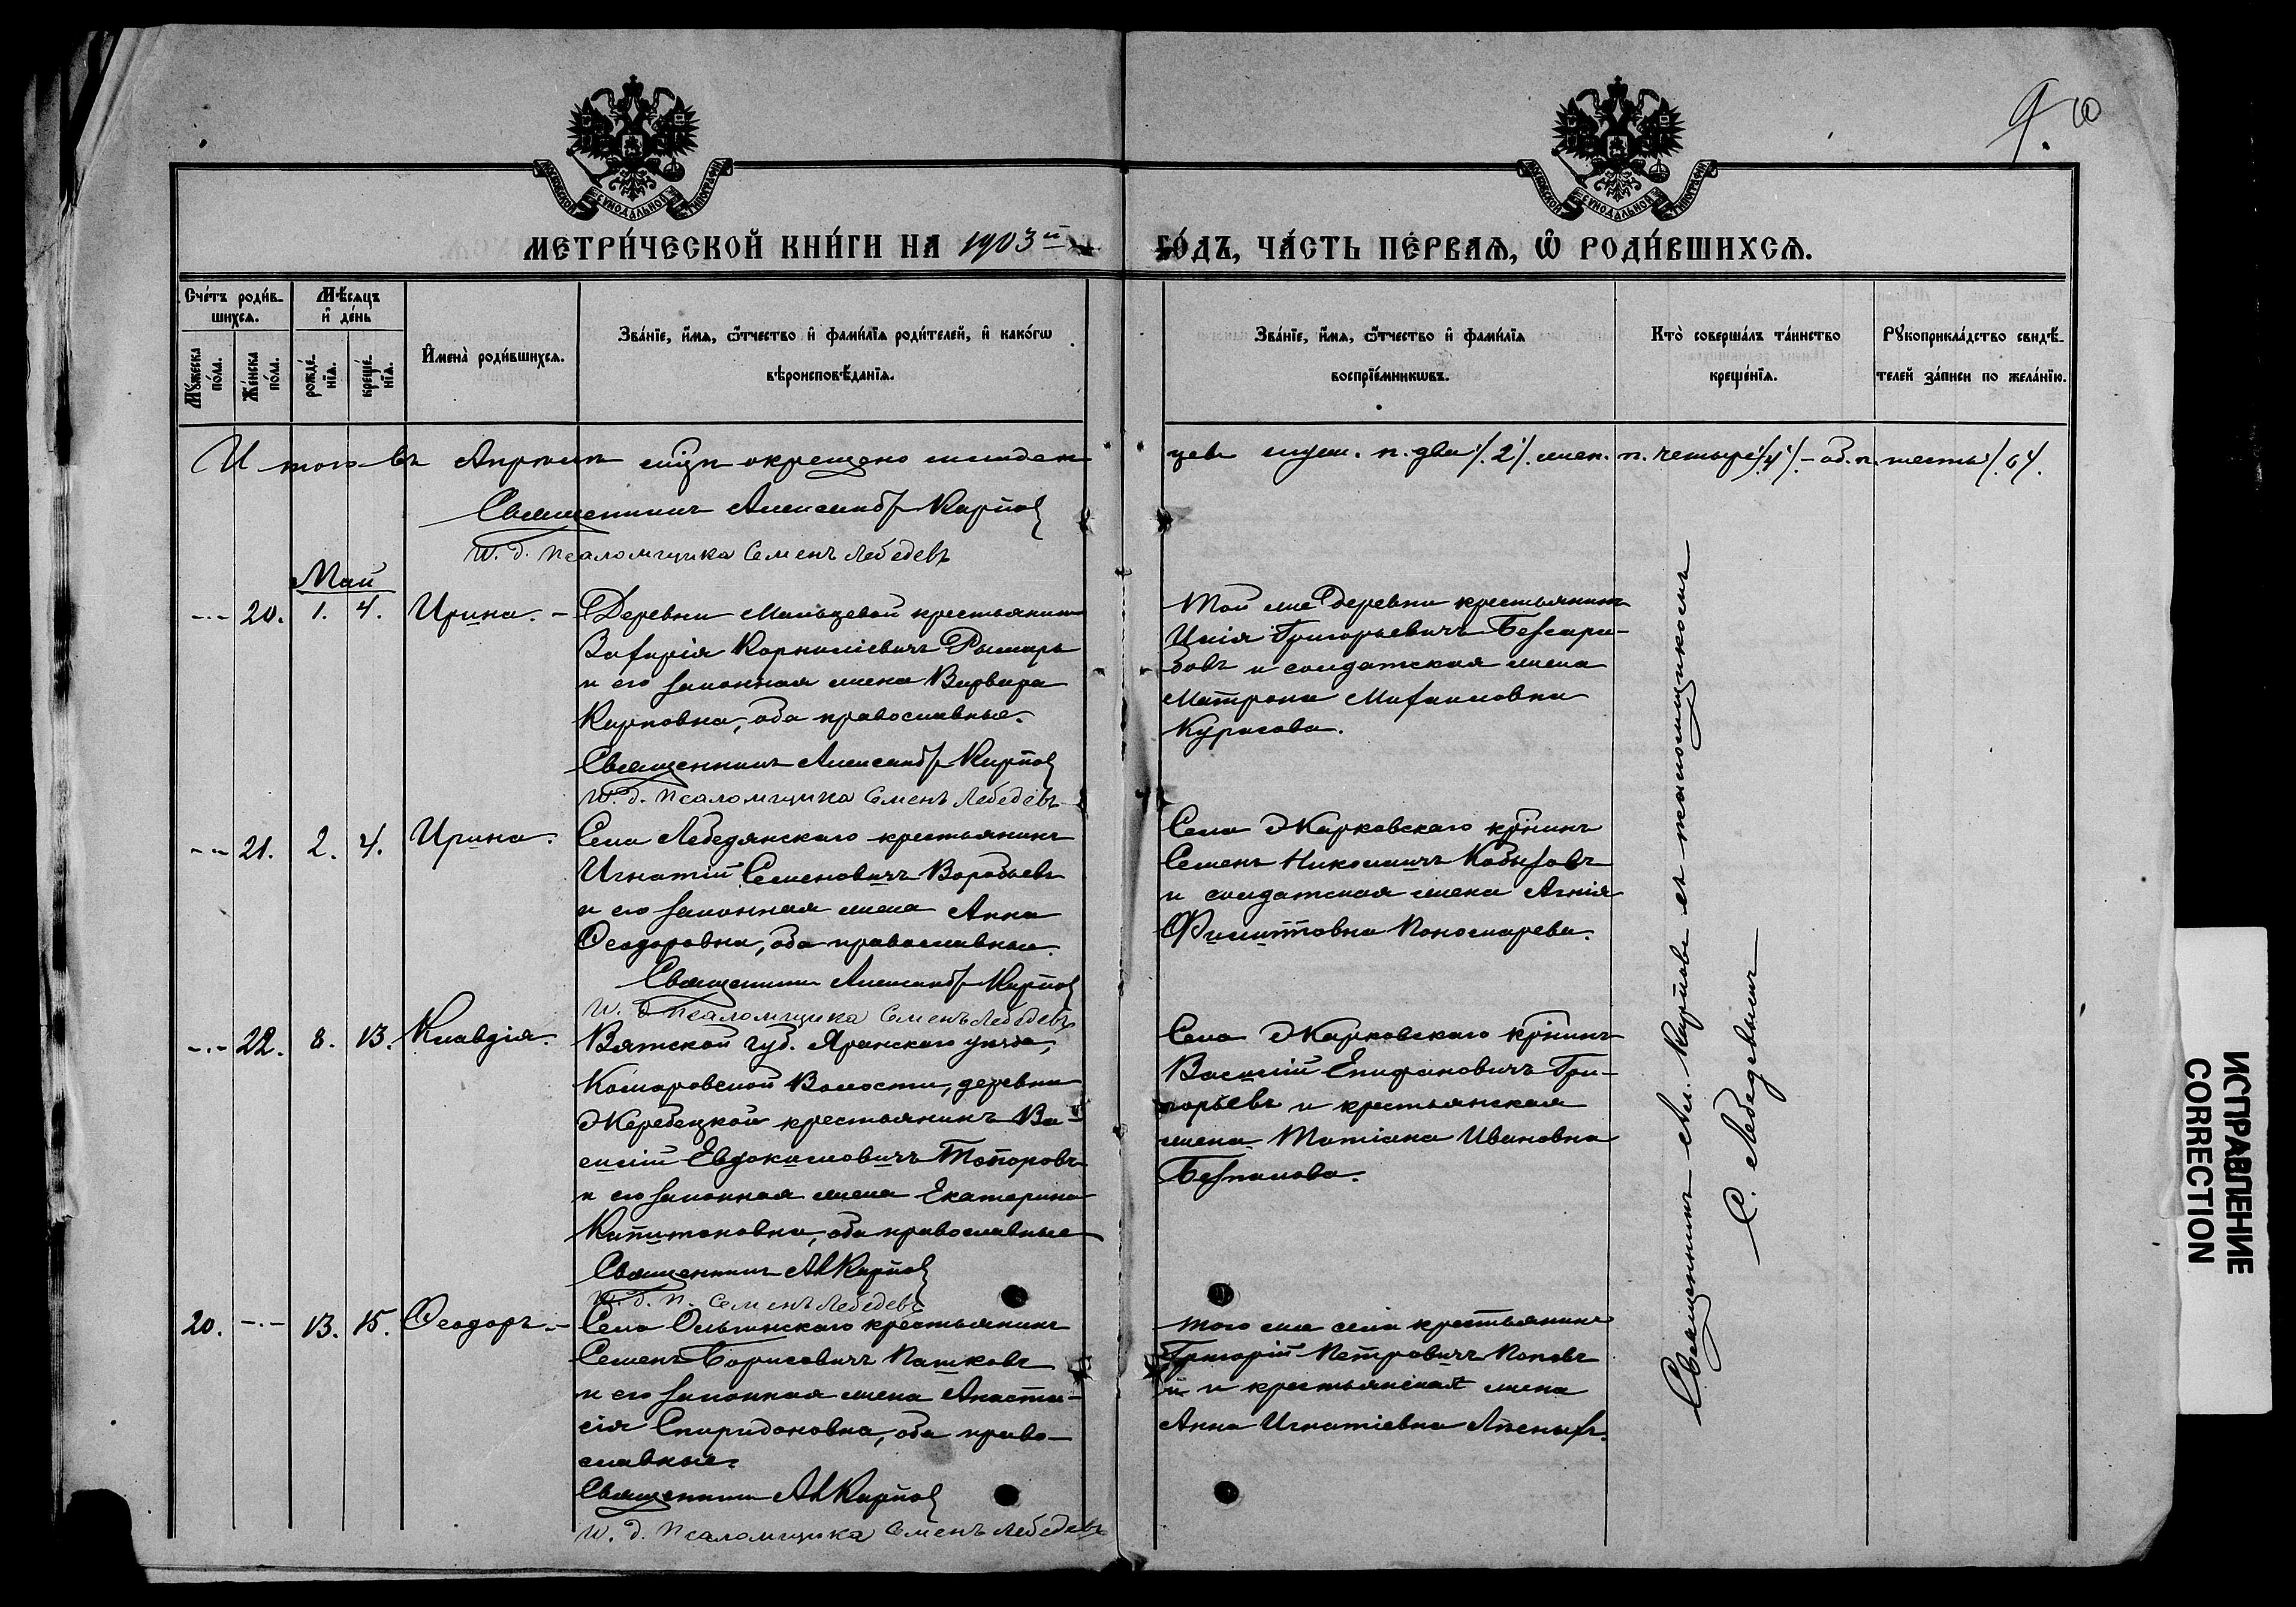 9.
10
МОСКОВСКОЙ СѴНОДАЛЬНОЙ ТИПОГРАФІИ
МОСКОВСКОЙ СѴНОДАЛЬНОЙ ТИПОГРАФІИ
МЕТРИ́ЧЕСКОЙ КНИ́ГИ НА 1903й ГО́ДЪ, ЧА́СТЬ ПЕ́РВАѦ, Ѡ҆ РОДИ́ВШИХСѦ.
Сче́тъ роди́в-
шихсѧ.
Мѣ́сѧцъ
и҆ де́нь
Мꙋ́жеска
по́ла.
Же́нска
по́ла.
рожде́-
нїѧ.
креще́-
нїѧ.
И҆мена̀ роди́вшихсѧ.
Зва́нїе, и҆́мѧ, ѻ҆́тчество и҆ фами́лїѧ роди́телей, и҆ како́гѡ
вѣроисповѣ́данїѧ.
Зва́нїе, и҆́мѧ, ѻ҆́тчество и҆ фами́лїѧ
воспрїе́мникѡвъ.
Кто̀ соверша́лъ та́инство
креще́нїѧ.
Рꙋкоприкла́дство свидѣ́-
телей за́писи по жела́нїю.
Итого въ Апрѣлѣ мцѣ окрещено младен
цевъ муж. п. два /.2/. жен. п. четыре /.4/. – об. п. шесть /.6/.
Священникъ Александръ Карповъ
И. д. псаломщика Семенъ Лебедевъ
Май
-.- 20. 1. 4. Ирина. –
Деревни Мальцевой крестьянинъ
Захарія Корниліевичъ Рыжарь
и его законная жена Варвара
Карповна, оба православные.
Священникъ Александръ Карповъ
И. д. псаломщика Семенъ Лебедевъ
Той же деревни крестьянинъ
Илія Григорьевичъ
и солдатская жена
Матрона Михаиловна
Курасова.
-.- 21. 2. 4. Ирина.
Села Лебедянскаго крестьянинъ
Игнатій Семеновичъ Воробьевъ
и его законная жена Анна
Ѳеодоровна, оба православные.
Священникъ Александръ Карповъ
И. д. псаломщика Семенъ Лебедевъ
Села Жарковскаго крнинъ
Семенъ Николаичъ Кобызовъ
и солдатская жена Агнія
Филиповна Пономарева.
-.- 22. 8. 13. Клавдія.
Вятской губ. Яранскаго уѣзда,
Комаровской Волости, деревни
Жеребецкой крестьянинъ Ва-
силій Евдокимовичъ Топоровъ
и его законная жена Екатерина
Капитоновна, оба православные
Священникъ Ал Карповъ
И. д. п. Семенъ Лебедевъ
Села Жарковскаго крнинъ
Василій Епифановичъ Гри-
горьевъ и крестьянская
жена Татіана Ивановна
Безпалова.
20. -.- 13. 15. Ѳеодоръ. –
Села Ольгинскаго крестьянинъ
Семенъ Борисовичъ Пашковъ
и его законная жена Анаста-
сія Спиридоновна, оба право-
славные.
Священникъ Ал Карповъ
И. д. псаломщика Семенъ Лебедевъ
Того же села крестьянинъ
Григорій Петровичъ Поповъ
и и крестьянская жена
Анна Игнатіевна
Священникъ Ал. Карповъ съ псаломщикомъ
С. Лебедевымъ
ИСПРАВЛЕНИЕ
CORRECTION